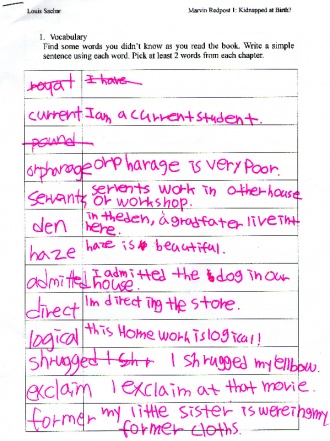 Louis Sachar Marvin Redpost 1: Kidnapped at Birth?
1. Vocabulary
Find some words you didn't know as you read the book. Write a simple
sentence using each word. Pick at least 2 words from each chapter.
royal I have
current I am a current student.
pound
orpharage orpharage is very Poor.
servants servents work in other house
or workshop.
den in the den, a gradfater live int
here.
haze haze is beautiful.
admitted I admitted the dog in our
house.
direct Im directing the store.
logical this Home work is logical!
shrugged I shrugged my ellbow.
exclaim I exclaim at that movie.
former my little sister is wereing my
former cloths.